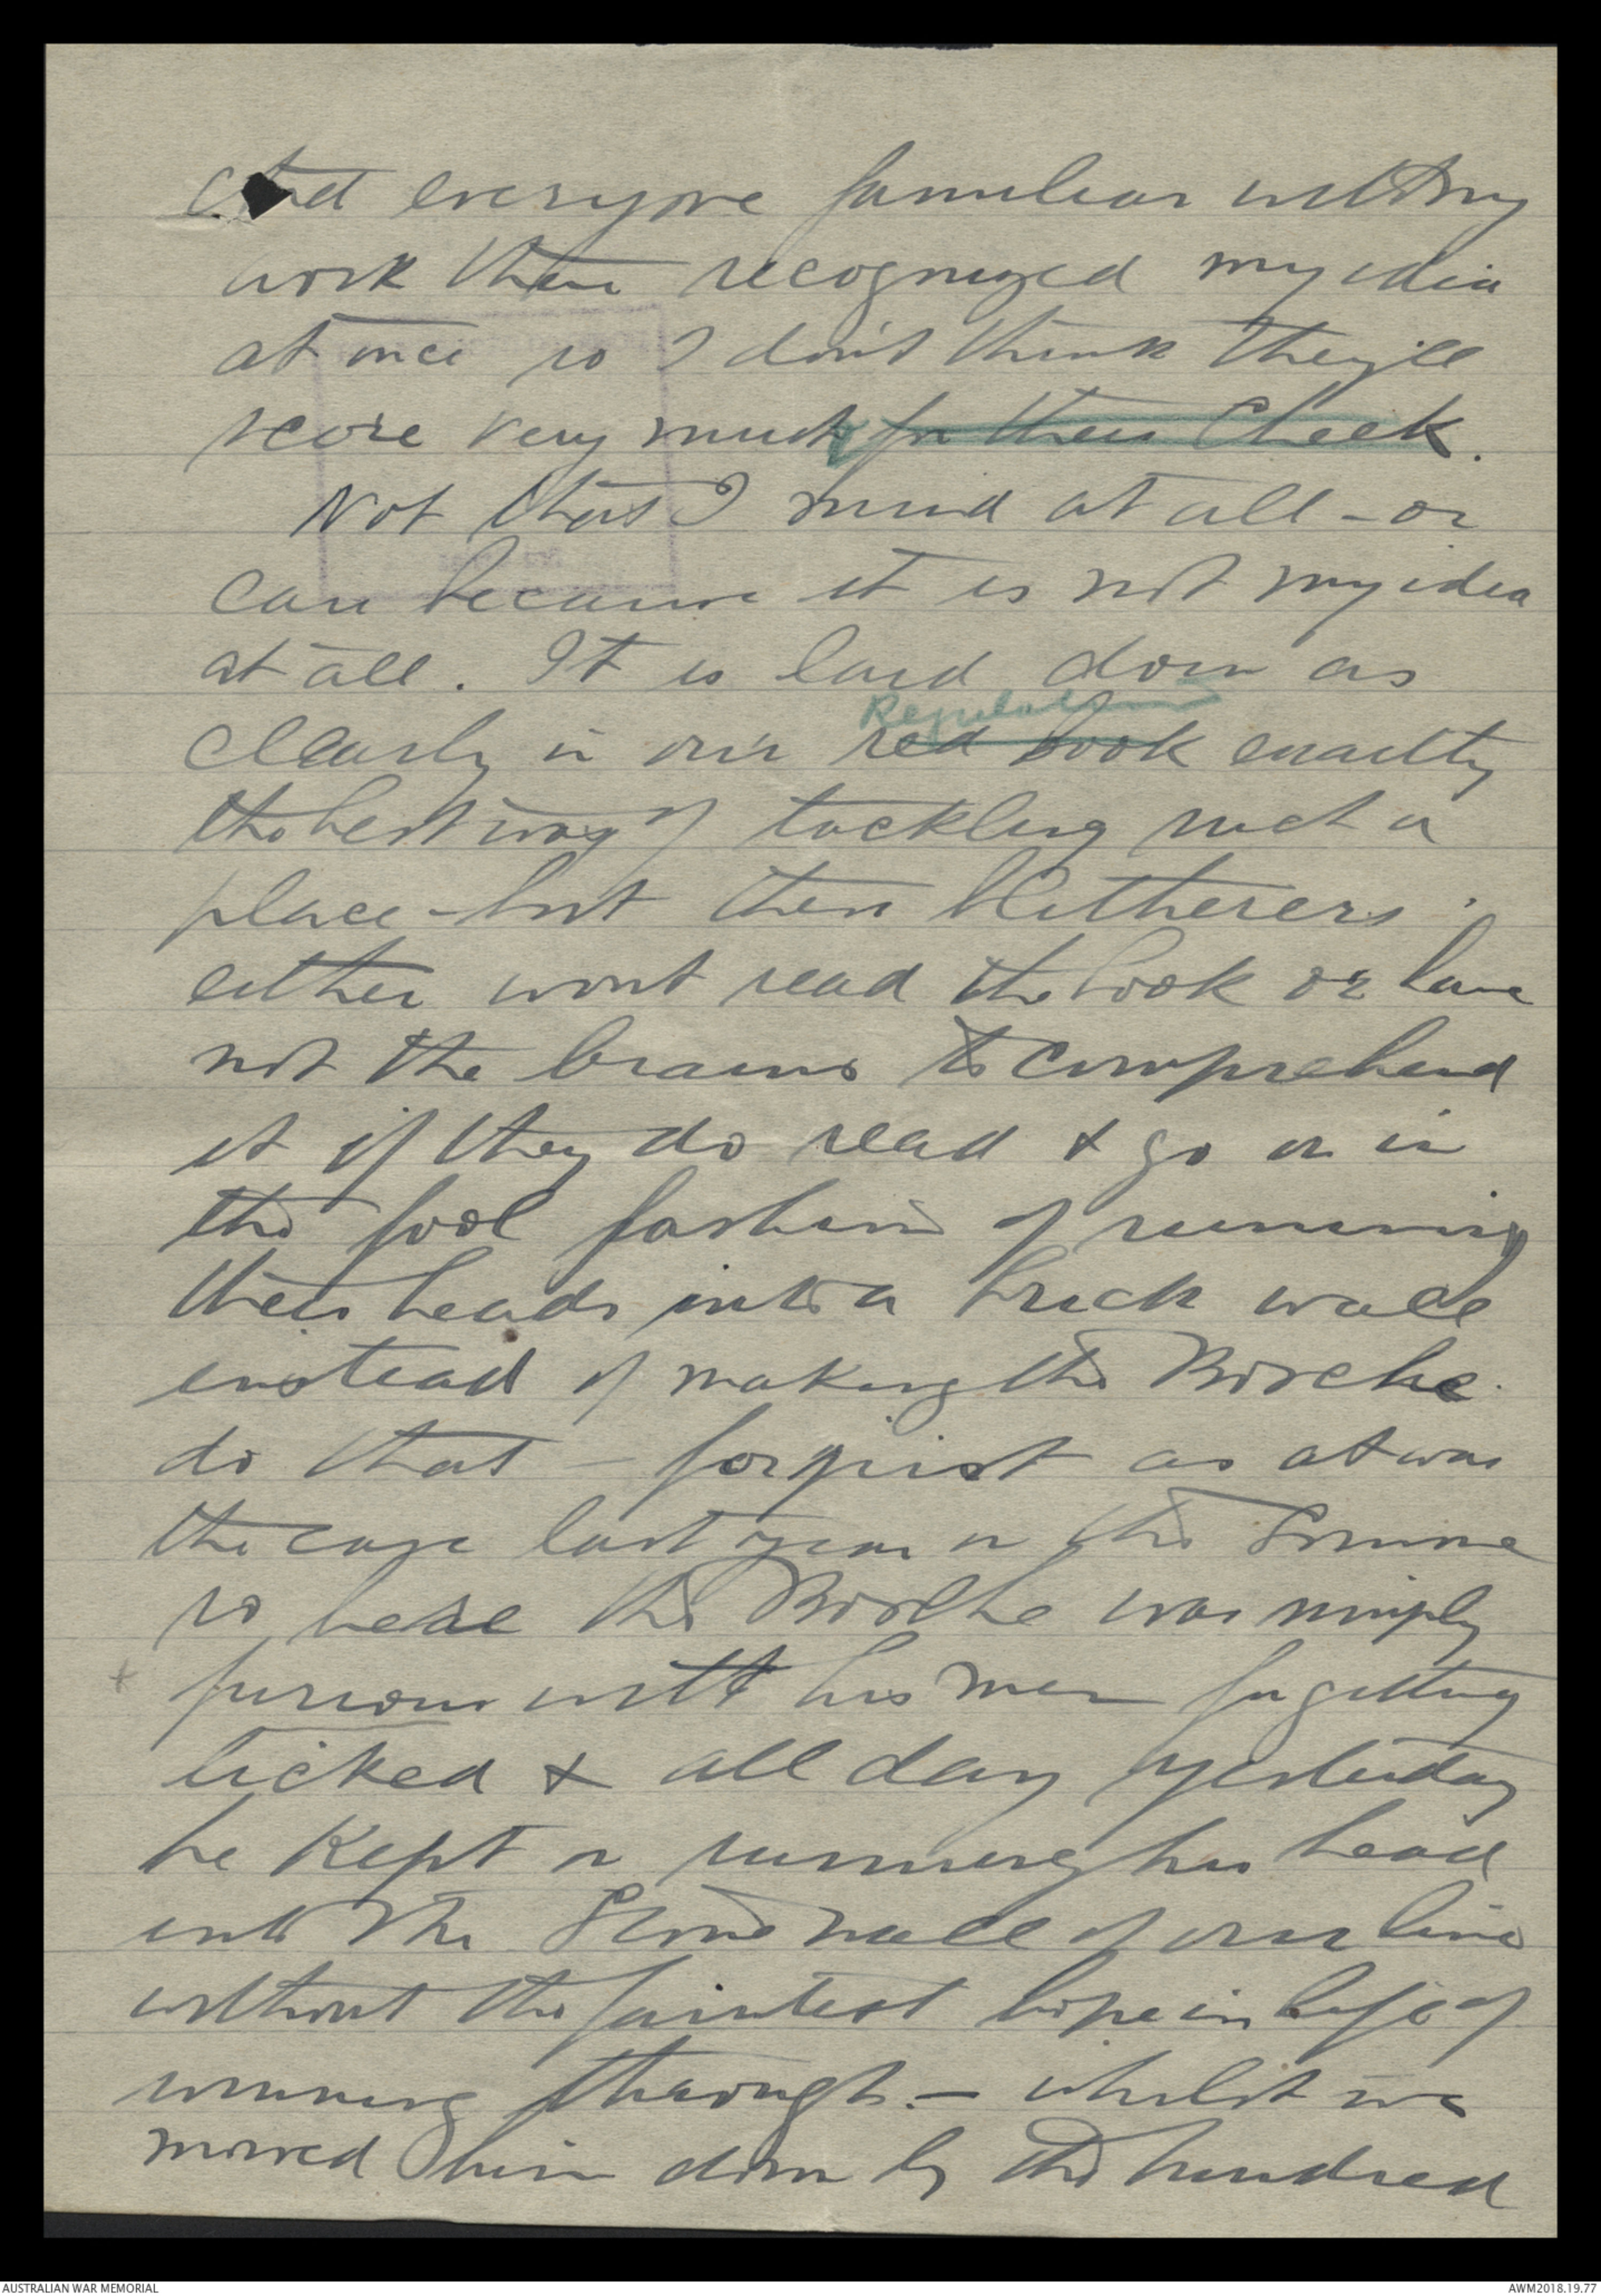 And everyone familiar with my
work there recognized my idea
at once so I don't think they'll
score very much for their cheek.
Not that I mind at all - or
can because it is not my idea
at all. It is laid down as
Regulations
clearly in our red book exactly
the best way of tackling such a
place - but these blitherers
either wont read the book or have
not the brains to comprehend
it if they do read & go on in
the fool fashion of running
their heads into a brick wall
instead of making the Bosche
do that - for just as at was
the case last year on the Somme
so here the Bosche was simply
+ furious with his men for getting
licked & all day yesterday
he kept on running his head
into the Stone wall of our line
without the faintest hope in life of
winning through. - whilst we
mowed him down by the hundred
AUSTRALIAN WAR MEMORIAL
AWM2018.19.77